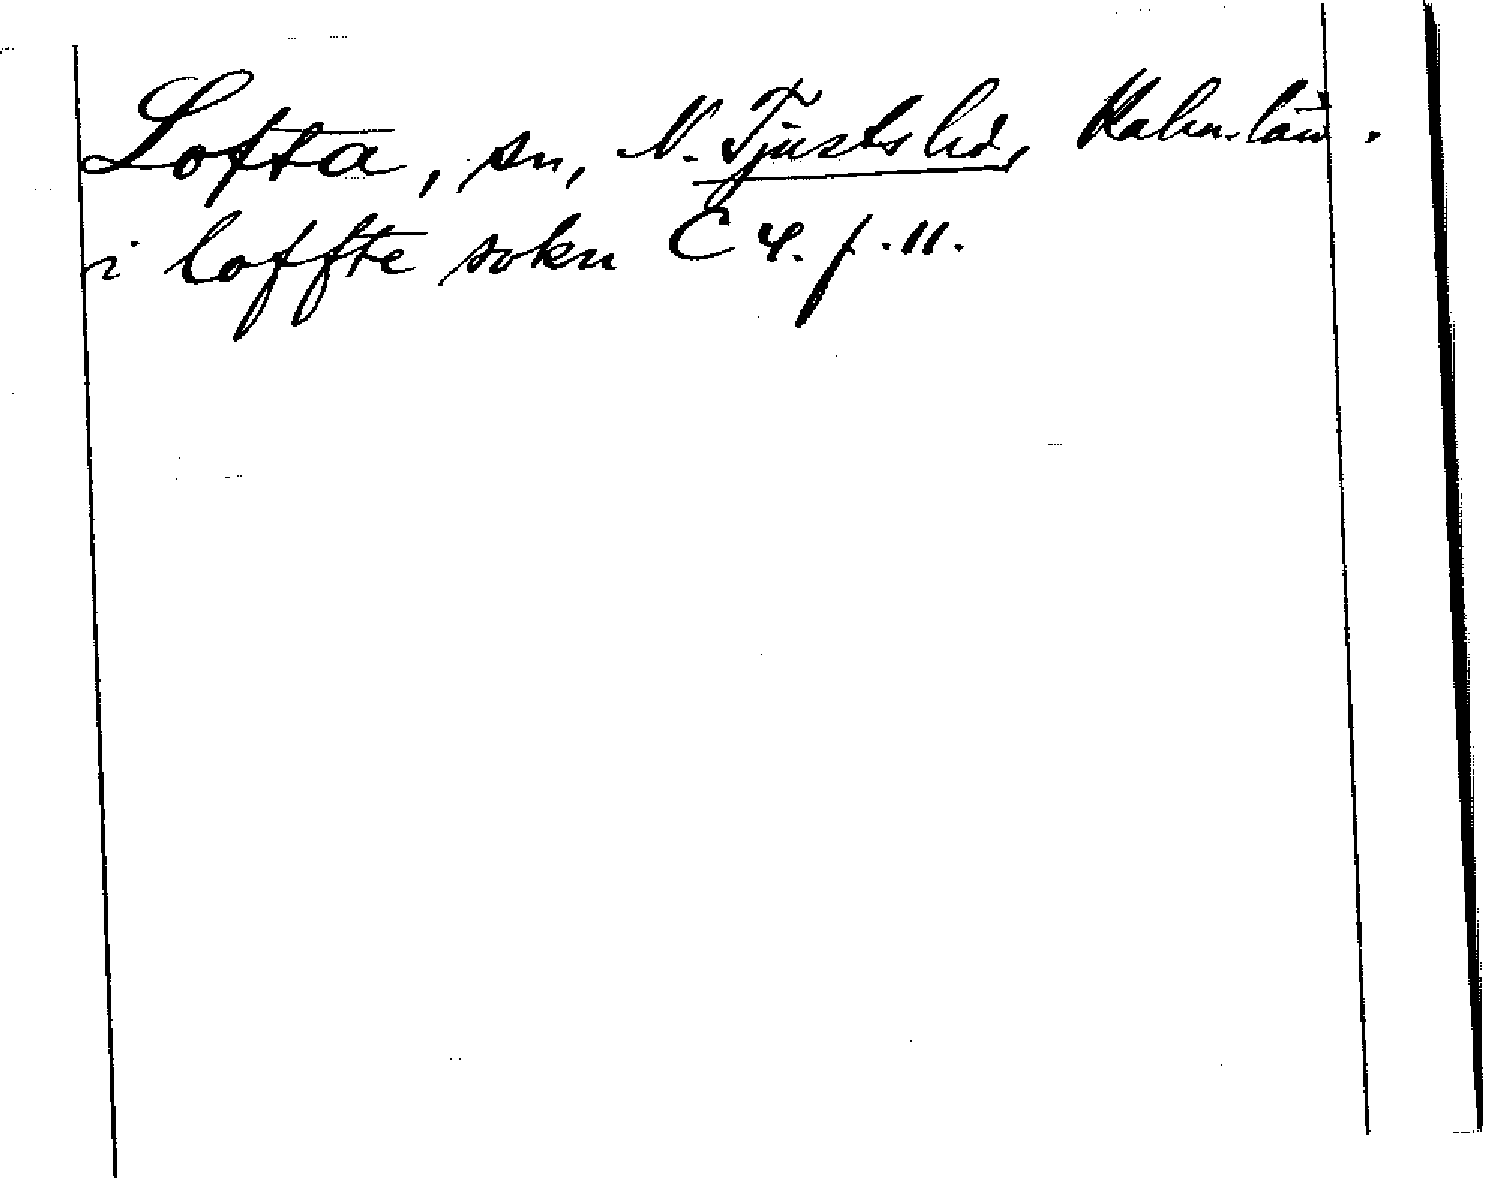 Lofta, sn, N. Tjusts hd, Kalm. län.
i loffte sokn C 4. f. 11.